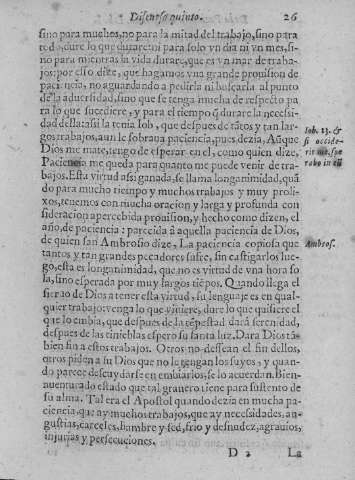 Discurso quinto. 26
sino para muchos, no para la mitad del trabajo, sino para
todo, dure lo que durare: ni para solo vn dia ni vn mes, si-
no para mientras la vida durare, que es vn mar de traba-
jos: por esso dize, que hagamos vna grande prouision de
paciencia, no aguardando a pedirla ni buscarla al punto
de la aduersidad, sino que se tenga mucha de respecto pa
ra lo que sucediere, y para el tiempo q̃ durare la necessi-
dad desta assi la tenia Iob, que despues de tãtos y tan lar-
gos trabajos, aun le sobraua paciencia, pues dezia, Aũque
Dios me mate, tengo de esperar en el, como quien dize,
Paciencia me queda para quanto me puede venir de tra-
bajos. Esta virtud assi ganada, se llama longanimidad, quã
do para mucho tiempo y muchos trabajos y muy proli-
xos, tenemos con mucha oracion y larga y profunda con
sideracion apercebida prouision, y hecho como dizen, el
año, de paciencia: parecida â aquella paciencia de Dios,
de quien san Ambrosio dize, La paciencia copiosa que
tantos y tan grandes pecadores sufre, sin castigarlos lue-
go, esta es longanimidad, que no es virtud de vna hora so
la, sino esperada por muy largos tiẽpos. Quando llega el
sieruo de Dios a tener esta virtud, su lenguaje es en qual-
quier trabajo: venga lo que viniere, dure lo que quisiere el
que lo embia, que despues de la tẽpestad dará serenidad,
despues de las tinieblas espero su santa luz. Dara Dios tã
bien fin a estos trabajos. Otros no dessean el fin dellos,
otros piden a su Dios que no le tengan los suyos, y quan-
do parece descuydarse en embiarlos, se lo acuerdan. Bien-
auenturado estado que tal granero tiene para sustento de
su alma. Tal era el Apostol quando dezia en mucha pa-
ciencia, que ay muchos trabajos, que ay necessidades, an-
gustias, carceles, hambre y sed, frio y desnudez, agrauios,
injurias y persecuciones.
D 2 La
Iob. 13. &
si occide-
rit me, spe
rabo in eũ
Ambros.